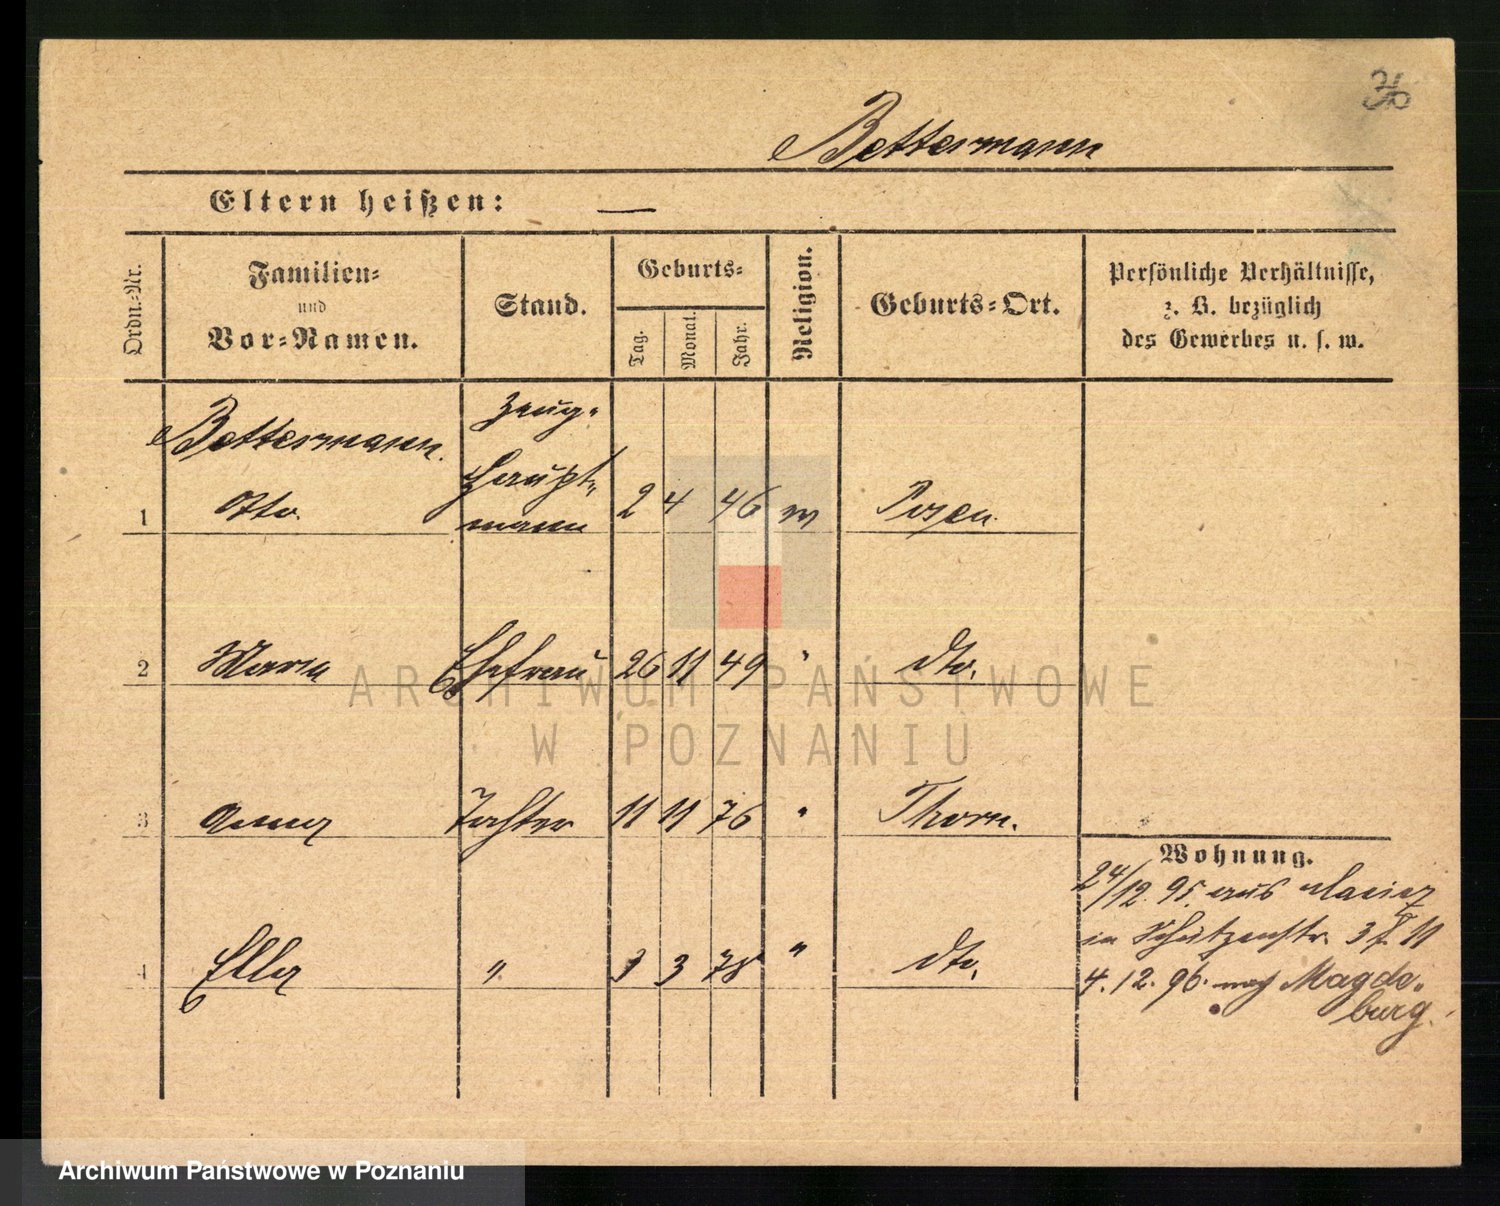 36
Bettermann
Eltern heißen: —
Ordn.-Nr.
Familien-
und
Vor-Namen.
Stand.
Geburts-
Tag.
Monat.
Jahr.
Religion.
Geburts-Ort.
Persönliche Verhältnisse,
z. B. bezüglich
des Gewerbes u. s. w.
Bettermann
Zeug-
Haupt-
1 Otto. mann 2 4 46 Posen
2 Maria Ehefrau 26 11 49 " dto.
3 Anna Tochter 11 11 76 " Thorn.
Wohnung.
24/12.95. aus Mainz
in Schützenstr. 3 11
4 Ella " 3 3 78 " dto.
4.12.96. nach Magde-
burg.
ARCHIWUM PAŃSTWOWE
W POZNANIU
Archiwum Państwowe w Poznaniu